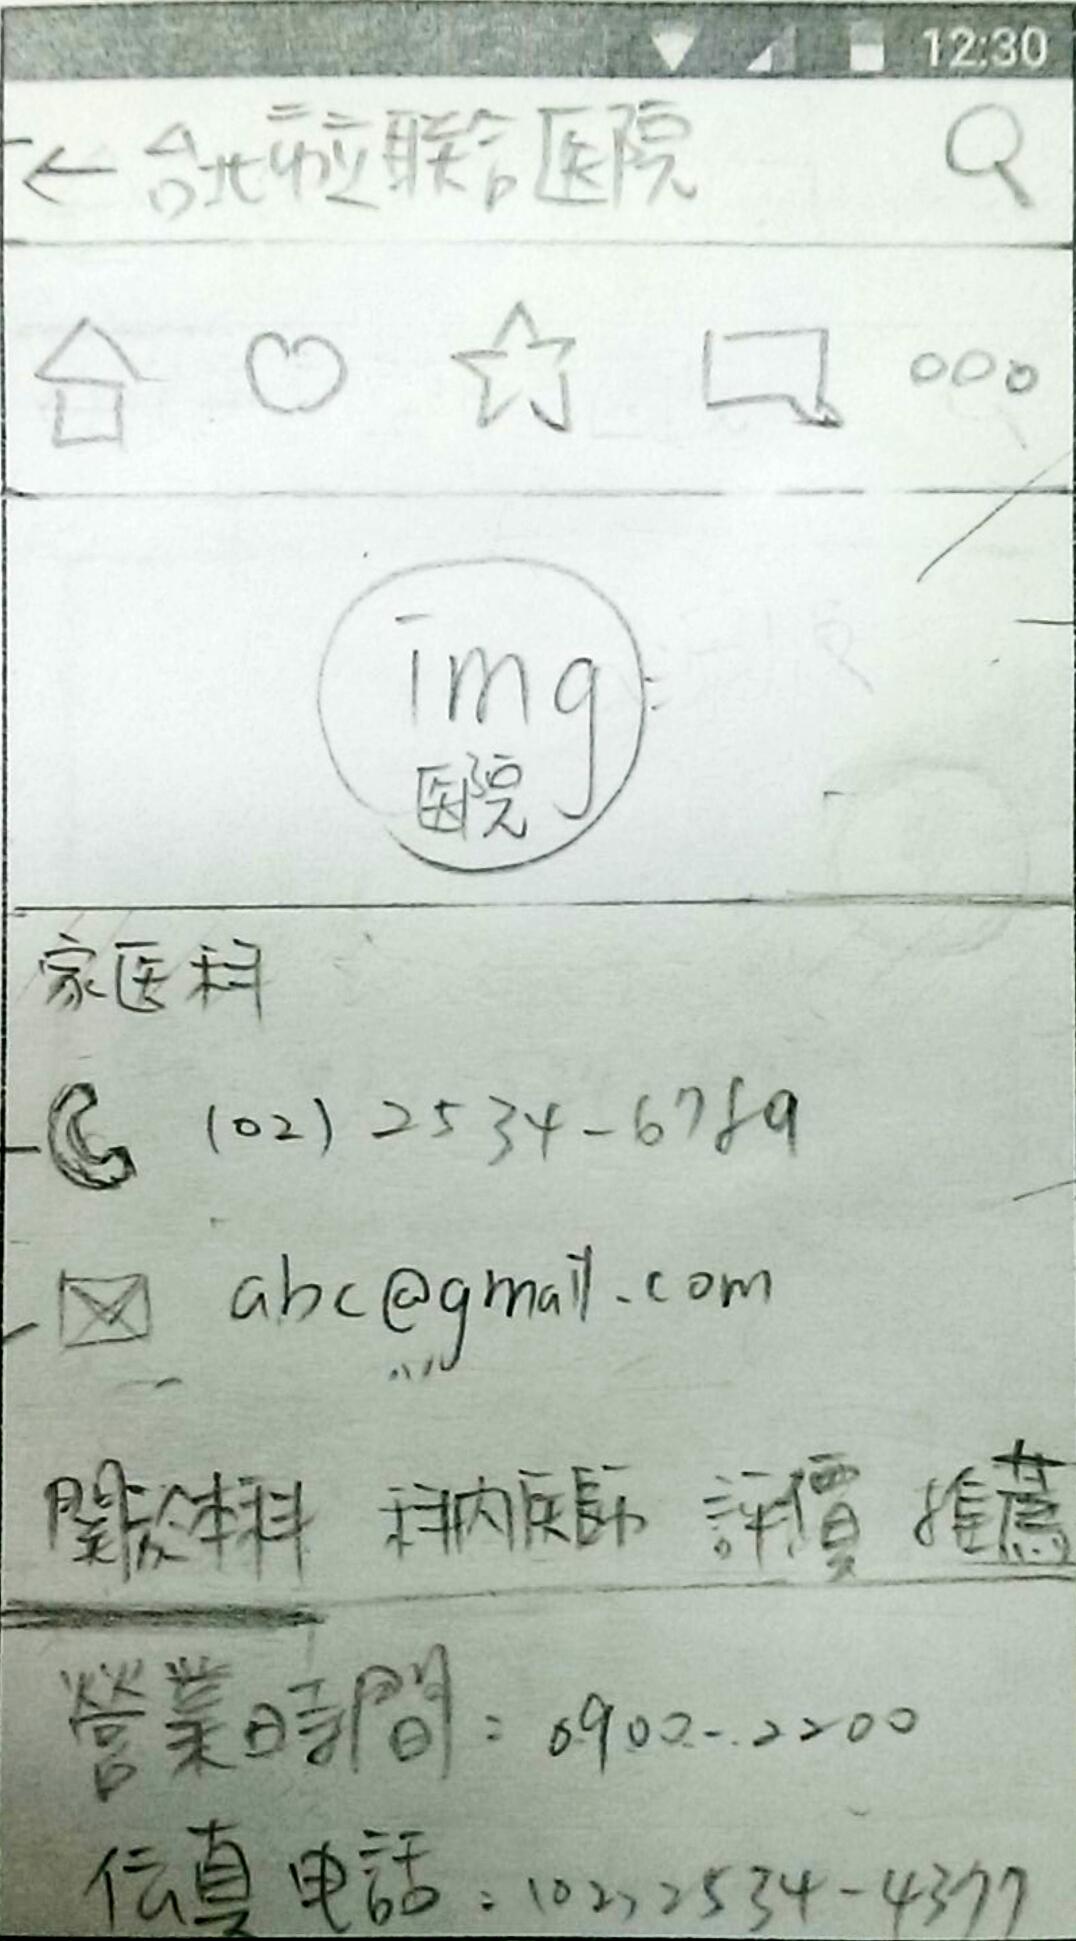 12:30
台北市立聯合医院
img
医院
家医科
(02) 2534-6789
abc@gmail.com
関於本科 科內医師 評價 推薦
營業時間：0900-2200
伝真电話：(02)2534-4377